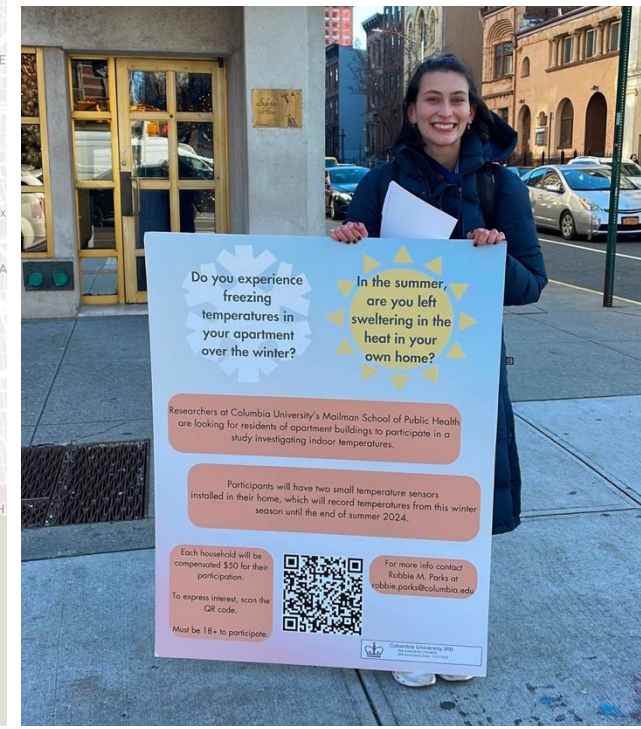 Do you experience
freezing
temperatures in
your apartment
over the winter?
In the summer,
are you left
sweltering in the
heat in your
own home?
Researchers at Columbia University's Mailman School of Public Health
are looking for residents of apartment buildings to participate in a
study investigating indoor temperatures.
Participants will have two small temperature sensors
installed in their home, which will record temperatures from this winter
season until the end of summer 2024.
Each household will be
compensated $50 for their
participation.
To express interest, scan the
QR code.
Must be 18+ to participate.
For more info contact
Robbie M. Parks at
robbie.parks@columbia.edu
Columbia University IRB